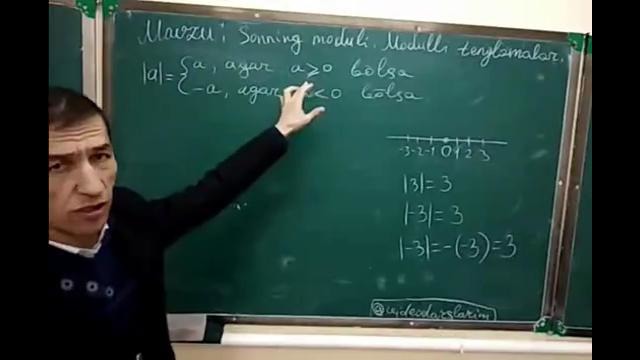 Mavzu: Sonning moduli. Modulli tenglamalar.
|a|= { a, agar a⩾0 bo'lsa
-a, agar <0 bo'lsa
-3 -2 -1 0 1 2 3
|3|=3
|-3|=3
|-3|=-(-3)=3
@videodarslarim